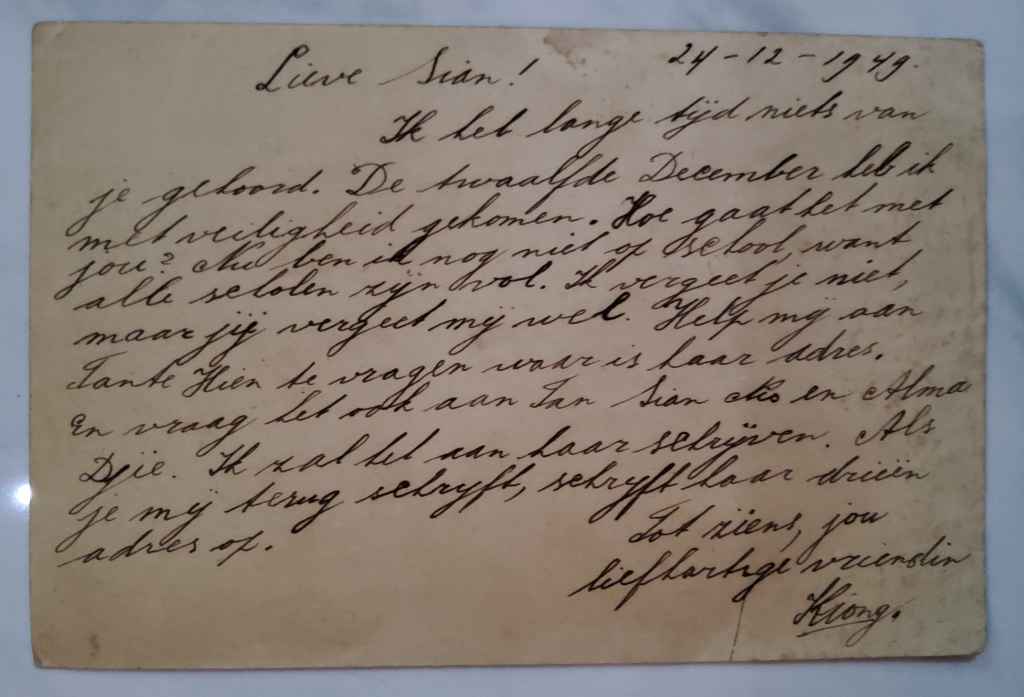 24-12-1949.
Lieve Sian!
Ik heb lange tijd niets van
je gehoord. De twaalfde December heb ik
met veiligheid gekomen. Hoe gaat het met
jou? Nu ben ik nog niet op school, want
alle scholen zijn vol. Ik vergeet je niet,
maar jij vergeet mij wel. Help mij aan
Tante Hien te vragen waar is haar adres.
En vraag het ook aan Tan Sian en Alma
Djie. Ik zal het aan haar schrijven. Als
je mij terug schrijft, schrijft haar drieën
adres op.
Tot ziens, jou
liefhartige vriendin
Kiong.